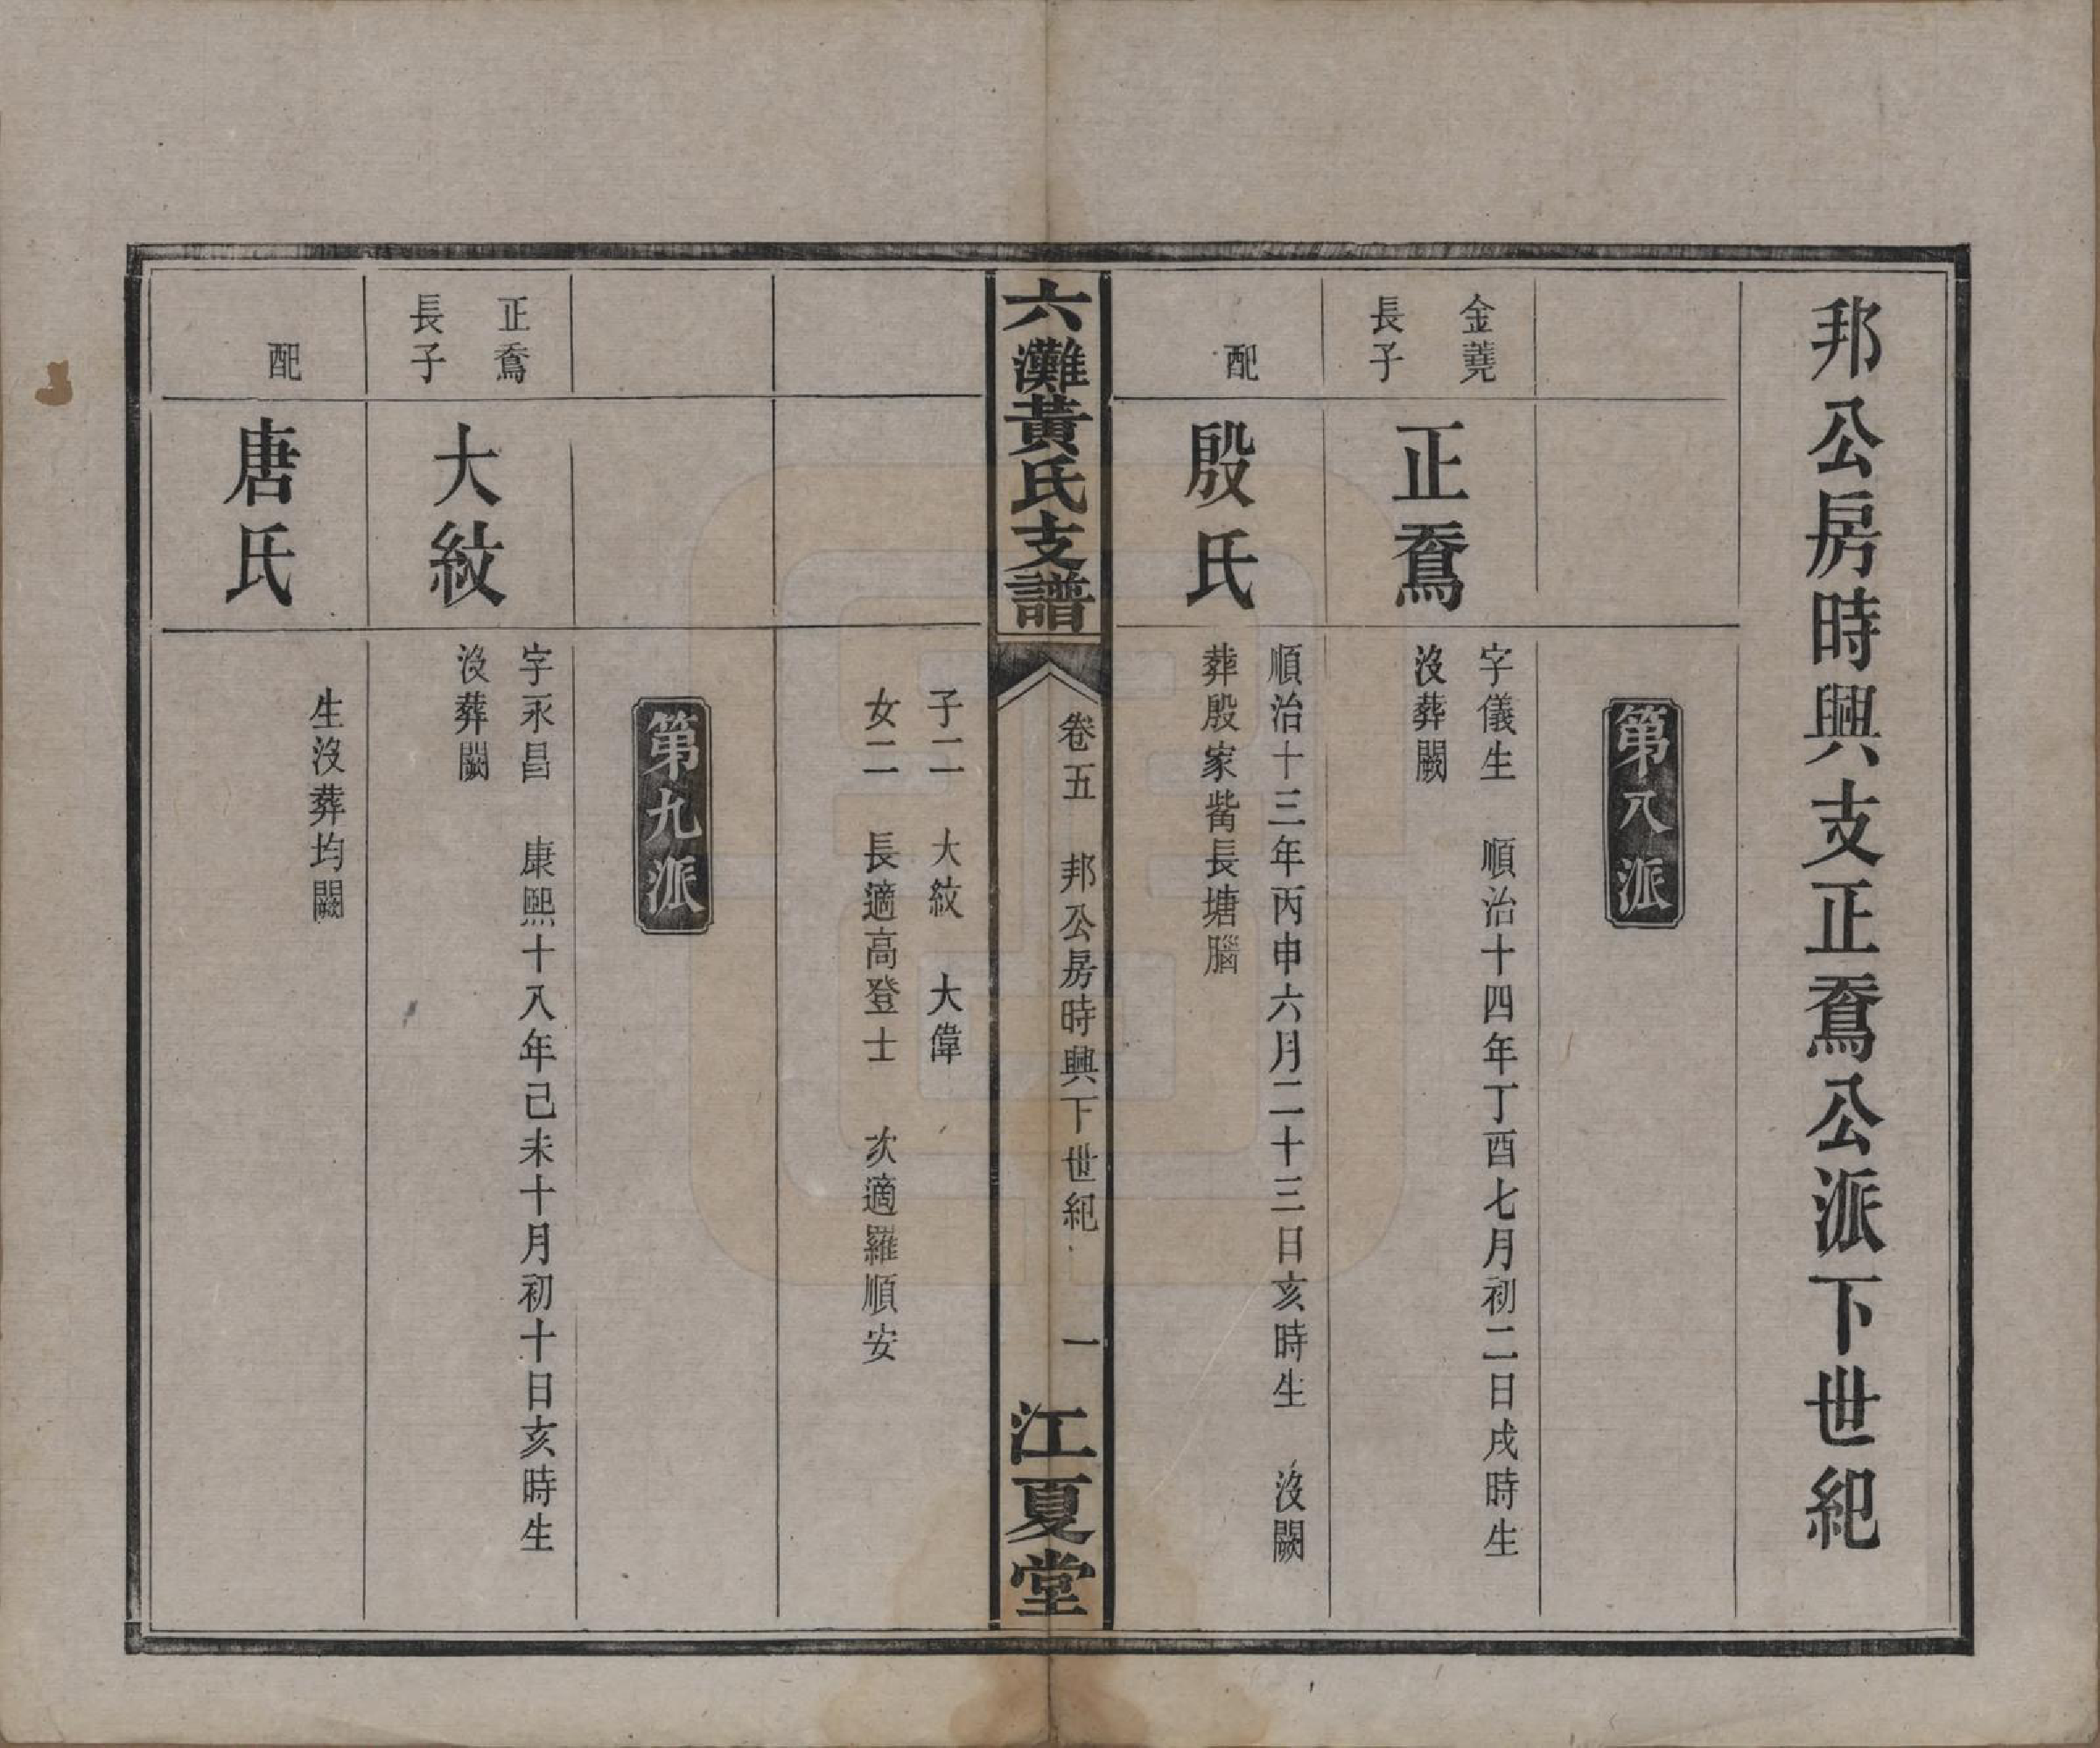 邦公房時興支正鴌公派下世紀
第八派
金蕘
長子
正鴌
字儀生 順治十四年丁酉七月初二日戌時生
沒葬闕
配
殷氏
順治十三年丙申六月二十三日亥時生 沒闕
葬殷家觜長塘腦
六灘黃氏支譜
卷五 邦公房時興下世紀 一
江夏堂
子二 大紋 大偉
女二 長適高登士 次適羅順安
第九派
正鴌
長子
大紋
字永昌 康熙十八年己未十月初十日亥時生
沒葬闕
配
唐氏
生沒葬均闕